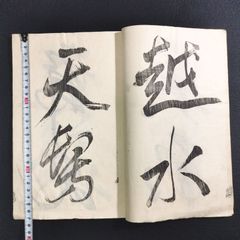 越水
天